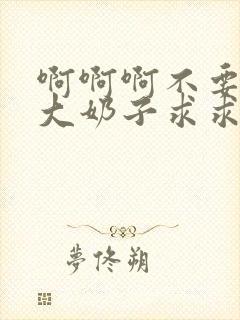 啊啊啊不要
大奶子求求
夢佟朔